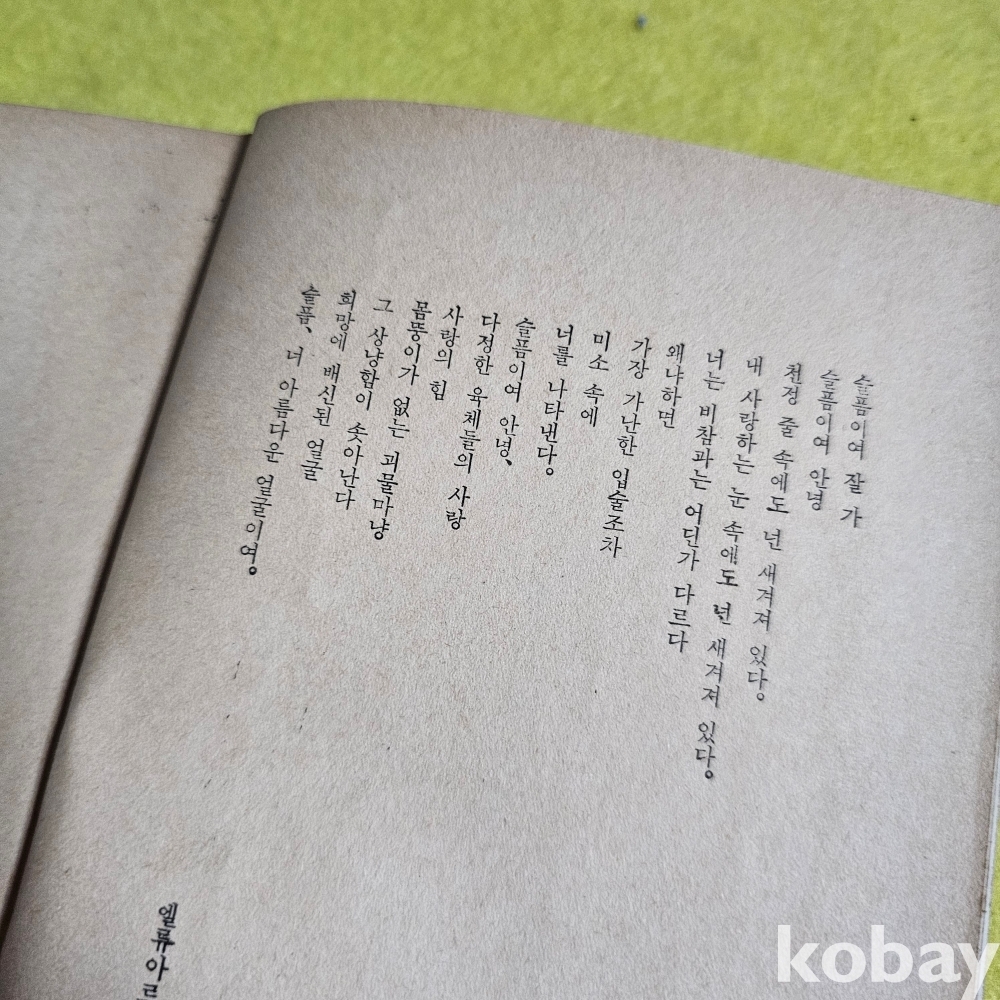 슬픔이여 잘 가
슬픔이여 안녕
천정 줄 속에도 넌 새겨져 있다。
내 사랑하는 눈 속에도 넌 새겨져 있다。
너는 비참과는 어딘가 다르다
왜냐하면
가장 가난한 입술조차
미소 속에
너를 나타낸다。
슬픔이여 안녕、
다정한 육체들의 사랑
사랑의 힘
그 상냥함이 솟아난다
몸뚱이가 없는 괴물마냥
희망에 배신된 얼굴
슬픔、 너 아름다운 얼굴이여。
엘류아르
kobay